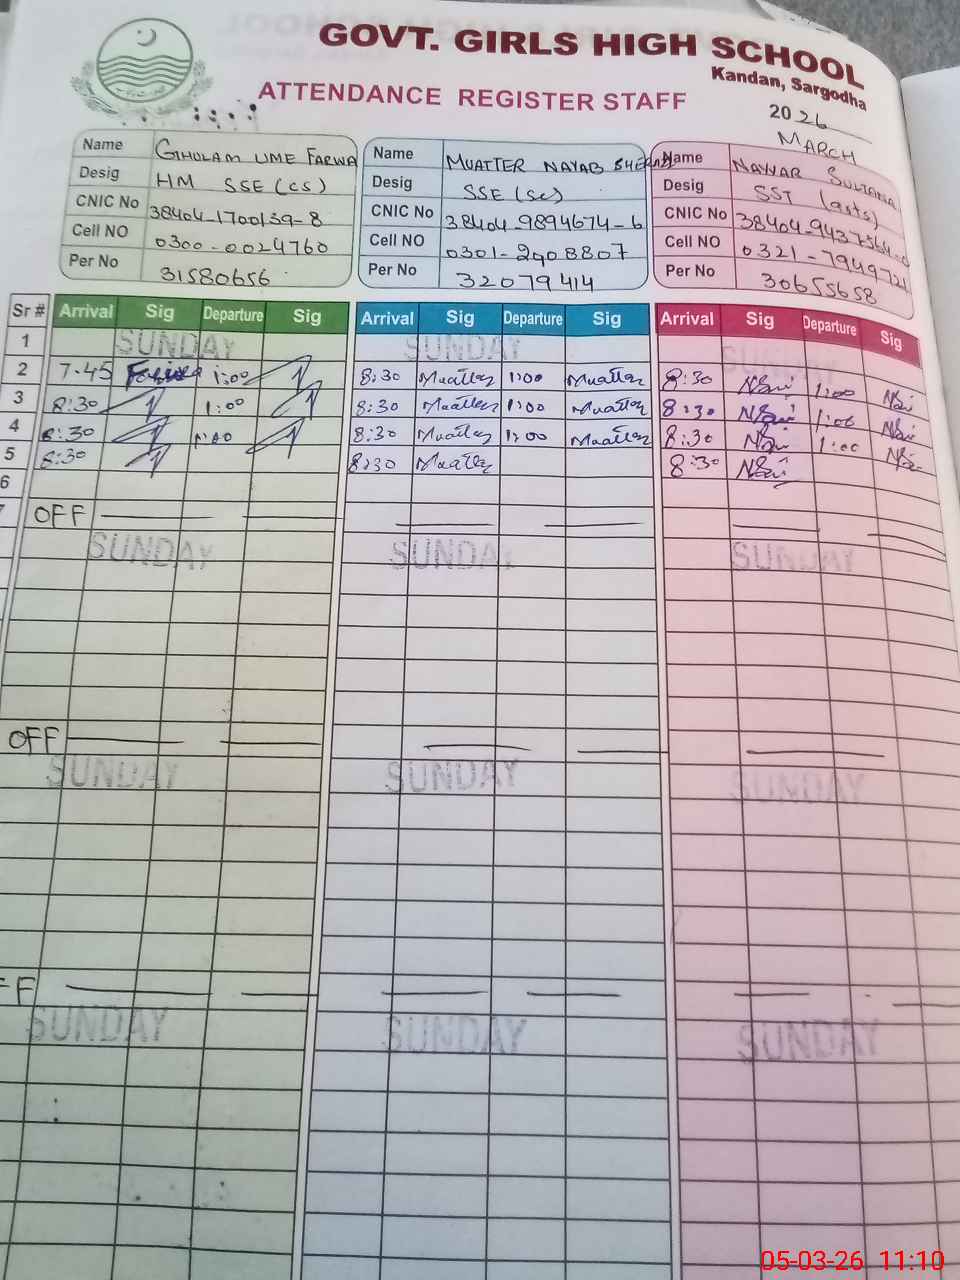 GOVT. GIRLS HIGH SCHOOL
Kandan, Sargodha
ATTENDANCE REGISTER STAFF
2026
MARCH
Name GHULAM UME FARWA
Desig HM SSE (CS)
CNIC No 38404-1700139-8
Cell NO 0300-0024760
Per No 31580656
Name MUATTER NAYAB
Desig SSE (Sc)
CNIC No 38404-9894674-6
Cell NO 0301-2908807
Per No 32079414
Name NAYYAR SULTANA
Desig SST (arts)
CNIC No
Cell NO 0321-7949721
Per No 30655658
Sr # Arrival Sig Departure Sig Arrival Sig Departure Sig Arrival Sig Departure Sig
1 SUNDAY SUNDAY SUNDAY
2 7.45 Farwa 1:00 8:30 Muatter 1:00 Muatter 8:30 1:00
3 8:30 1:00 8:30 Muatter 1:00 Muatter 8:30 1:00
4 8:30 1:00 8:30 Muatter 1:00 Muatter 8:30 1:00
5 8:30 8:30 Muatter 8:30
6
7 OFF
SUNDAY SUNDAY SUNDAY
OFF
SUNDAY SUNDAY SUNDAY
FF
SUNDAY SUNDAY SUNDAY
05-03-26 11:10